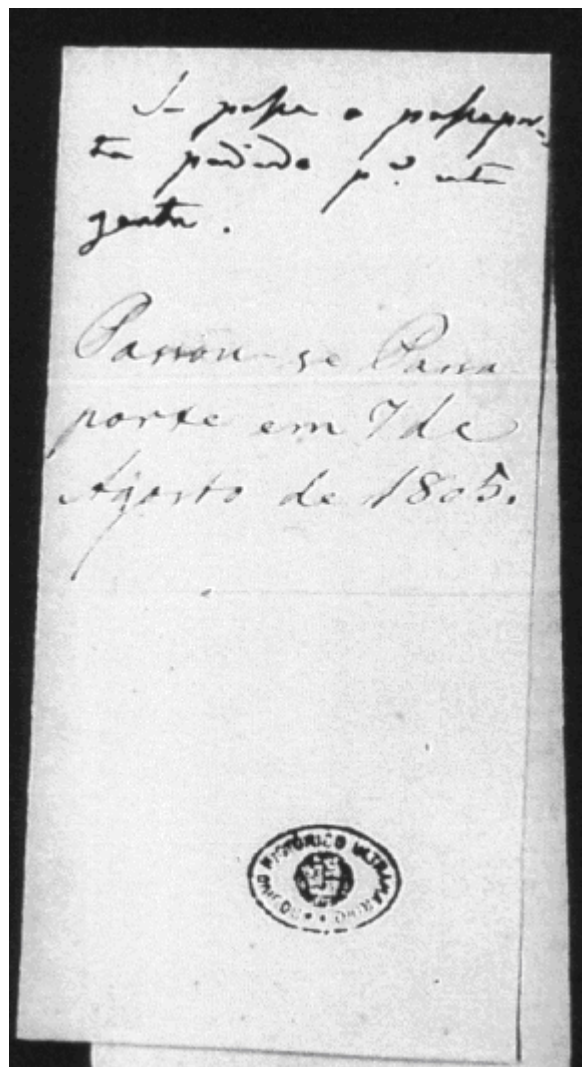 Se passe o passapor-
te pedido p.ª esta
gente.
Passou-se Passa
porte em 7 de
Agosto de 1805.
ARQUIVO HISTÓRICO ULTRAMARINO